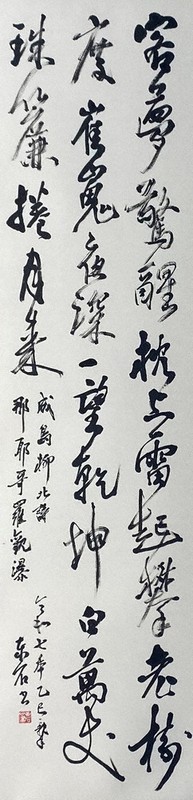 客夢驚醒枕上雷起攀老樹
度崔嵬夜深一望乾坤白萬丈
珠簾捲月来
成島柳北詩
那耶哥羅観瀑
令和七年乙巳秋
東石書